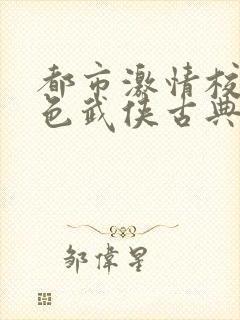 都市激情校
色武侠古典
邹偉星